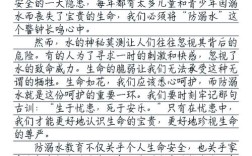 安全的一大隐患，每年都有太多儿童和青少年因溺
水而丧失了宝贵的生命，我们必须将“防溺水”这
个警钟长鸣心中。
然而，水的神秘莫测让人们往往忽视其背后的
危险。有的人为了寻求一时的刺激和快感，忽视了
水的致命威力。生命的脆弱让我们无法承受这无声
的牺牲。生命如花，我们应该悉心呵护，而防溺
水就是这份呵护的重要一环。我们要时刻牢记那句
古训：“生于忧患，死于安乐。”只有在忧患中，
我们才能更好地认识生命的宝贵，更好地珍视生命
的尊严。
防溺水教育不仅关乎个人生命安全，也关乎家